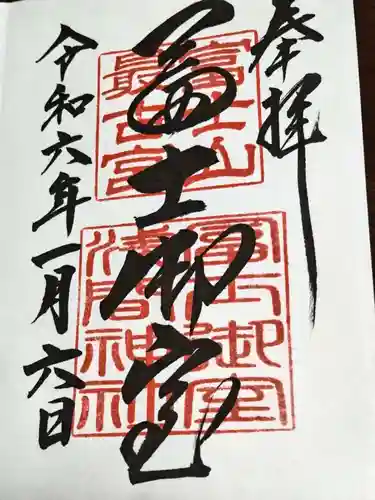 奉拝
富士山
最古宮
冨士御室
冨士御室
浅間神社
令和六年一月六日